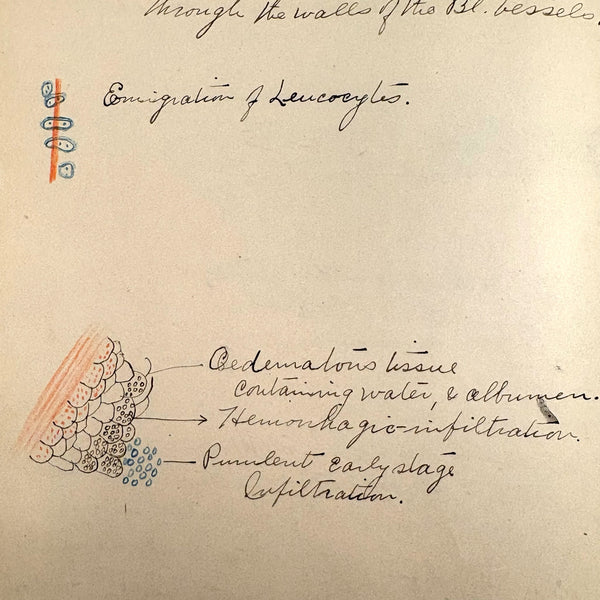 through the walls of the Bl. vessels.
Emigration of Leucocytes.
Oedematous tissue
containing water, & albumen.
Hemorrhagic-infiltration.
Purulent early stage
Infiltration.